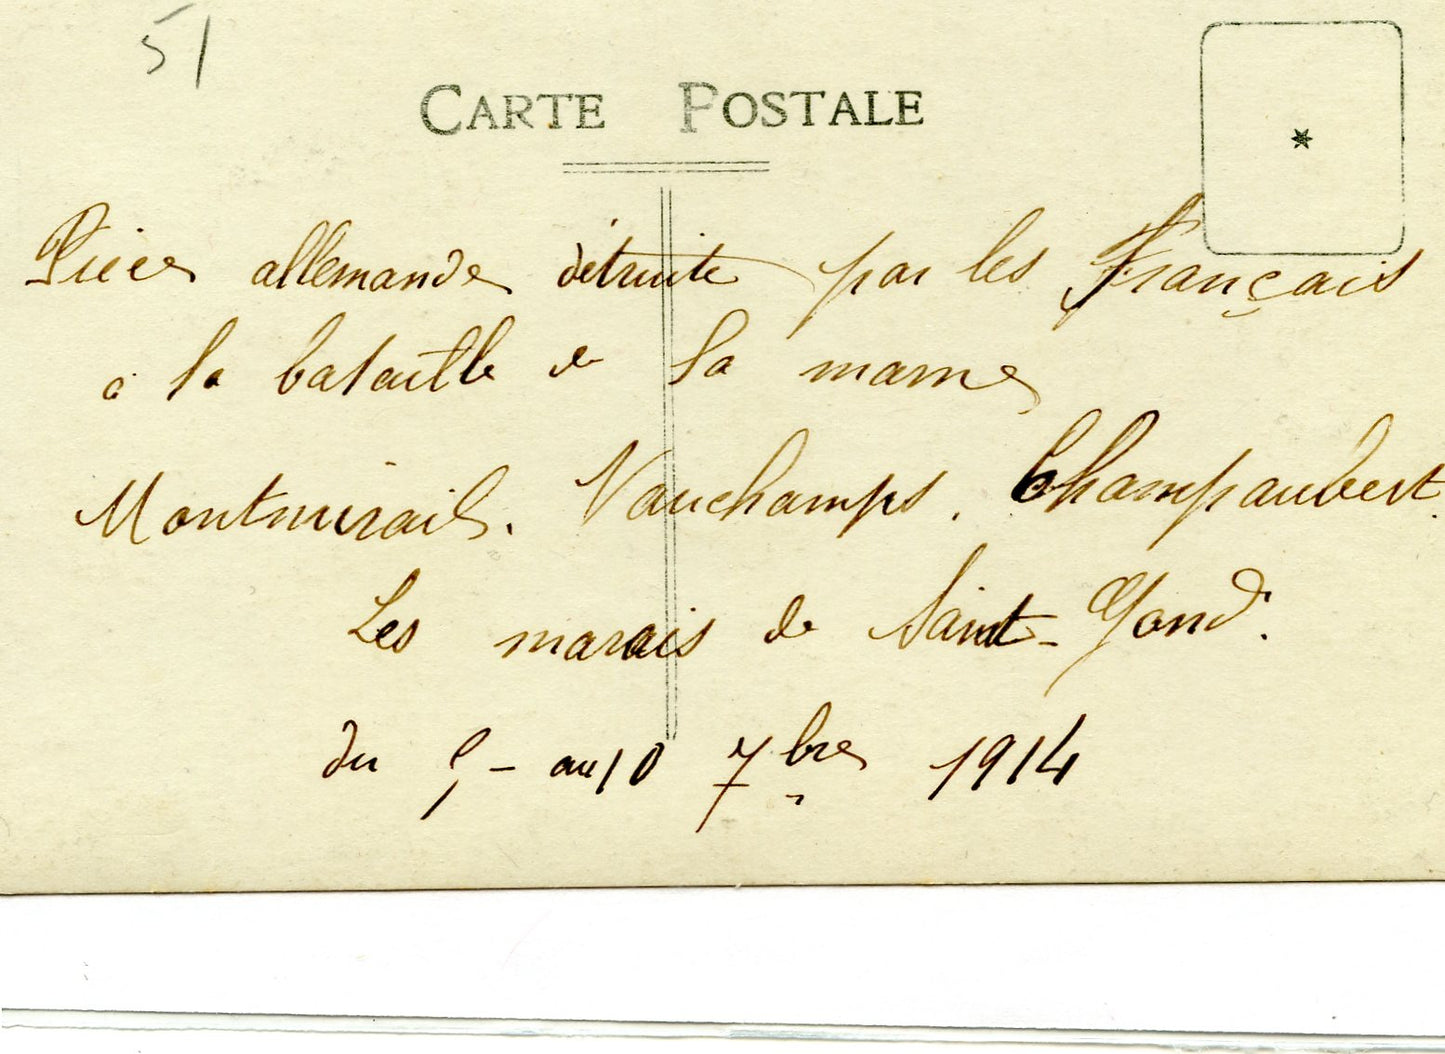 51
CARTE POSTALE
Pièce allemande détruite par les Français
à la bataille de la marne
Montmirail. Vauchamps. Champaubert.
Les marais de Saint-Gond.
du 5 - au 10 7bre 1914